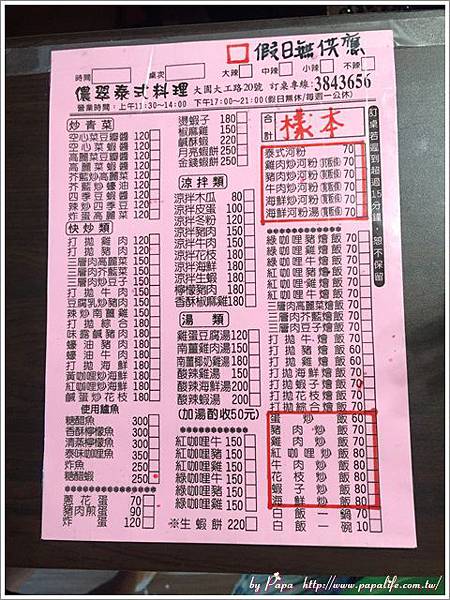 假日無供應
時間 桌次 大辣 中辣 小辣 不辣
儂翠泰式料理 大園大工路20號 訂桌專線:3843656
營業時間:上午11:30~14:00 下午17:00~21:00(假日無休/每週一公休)
炒青菜
空心菜豆瓣醬 120
空心菜蝦醬 120
高麗菜豆瓣醬 120
高麗菜蝦醬 120
芥藍炒蝦醬 120
芥藍炒蠔油 120
四季豆豆瓣醬 120
四季豆蝦醬 120
炸蛋高麗菜 120
快炒類
打拋雞肉 120
打拋豬肉 120
三層肉高麗菜 150
三層肉芥藍菜 150
三層肉豆子 150
打拋牛肉 150
豆腐乳炒豬肉 150
辣炒南薑雞 150
打拋綜合 180
味露鹹豬肉 180
蠔油豬肉 180
蠔油牛肉 180
打拋海鮮 180
黃咖哩炒海鮮 180
紅咖哩炒海鮮 180
鹹蛋炒花枝 180
使用鱸魚
糖醋魚 300
香酥檸檬魚 300
清蒸檸檬魚 300
泰味咖哩魚 350
炸魚 250
糖醋蝦 250
蔥花蛋 70
豬肉煎蛋 90
炸蛋 120
燙蝦子 180
椒麻雞 180
鹹酥蝦 200
月亮蝦餅 250
金錢蝦餅 250
涼拌類
涼拌木瓜 80
涼拌皮蛋 100
涼拌冬粉 120
涼拌豬肉 150
涼拌牛肉 150
涼拌花枝 150
涼拌海鮮 180
涼拌生蝦 180
檸檬豬肉 180
香酥椒麻雞 180
湯類
雞蛋豆腐湯 120
南薑雞肉湯 150
南薑椰奶雞湯 150
酸辣雞湯 150
酸辣海鮮湯 200
酸辣蝦湯 200
(加湯酌收50元)
紅咖哩牛 150
紅咖哩豬 150
紅咖哩雞 150
綠咖哩牛 150
綠咖哩豬 150
綠咖哩雞 150
※生蝦餅 220
合計 樣本
泰式河粉 70
雞肉炒河粉(寬板條) 70
豬肉炒河粉(寬板條) 70
牛肉炒河粉(寬板條) 70
海鮮炒河粉(寬板條) 70
海鮮河粉湯(寬板條) 70
訂桌若遲到超過15分鐘,恕不保留
綠咖哩豬燴飯 70
綠咖哩雞燴飯 70
綠咖哩牛燴飯 70
紅咖哩豬燴飯 70
紅咖哩雞燴飯 70
紅咖哩牛燴飯 70
三層肉高麗菜燴飯 70
三層肉芥藍燴飯 70
三層肉豆子燴飯 70
打拋牛燴飯 70
打拋豬燴飯 60
打拋雞燴飯 60
打拋蝦子燴飯 70
打拋花枝燴飯 70
打拋綜合燴飯 70
蛋炒飯 60
豬肉炒飯 70
雞肉炒飯 70
紅咖哩炒飯 80
牛肉炒飯 80
花枝炒飯 80
蝦子炒飯 80
海鮮炒飯 80
白飯一鍋 70
白飯一碗 10
by Papa http://www.papalife.com.tw/